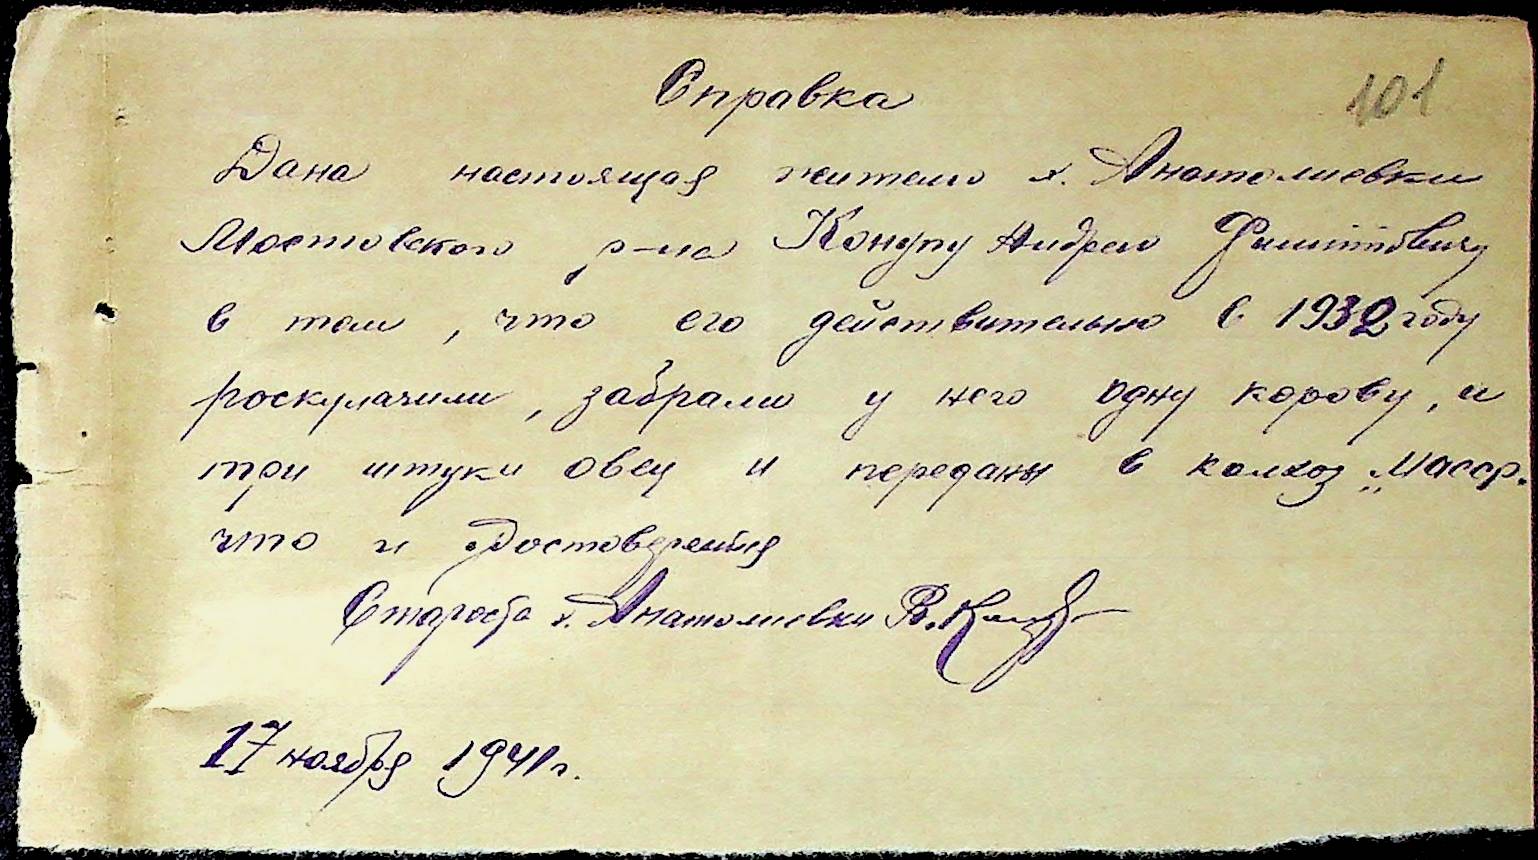 Справка 101
Дана настоящая жителю х. Анатолиевки
Мостовского р-на Конупу Андрею Филиповичу
в том, что его действительно в 1932 году
роскулачили, забрали у него одну корову, и
три штуки овец и переданы в колхоз „Масср.
что и
Староста х. Анатолиевки В.
17 ноября 1941 г.